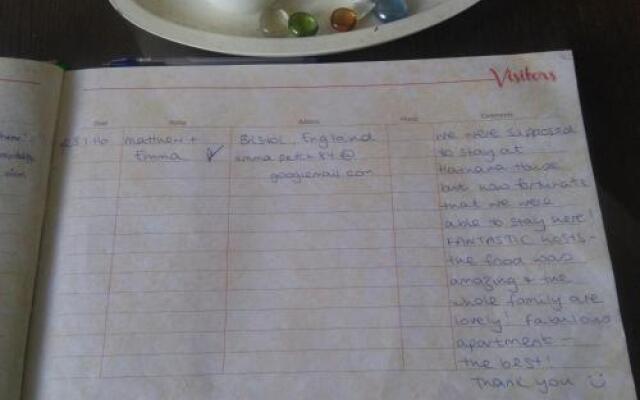 Visitors
Name
Address
Comments
matthew +
Emma
Bristol, England
emma petch 84 @
googlemail.com
we were supposed
to stay at
House
but how fortunate
that we were
able to stay here!
FANTASTIC hosts -
the food was
amazing & the
whole family are
lovely! Fabulous
apartment -
the best!
Thank you ☺